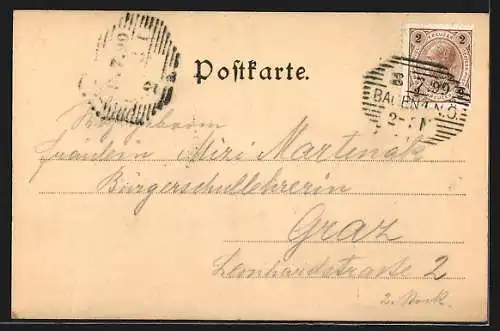 2 2
Postkarte.
99
BADEN N.Ö.
Wohlgeboren
Fräulein Miri Martinatz
Bürgerschullehrerin
Graz
Leonhardstrasse 2
2. Stock.